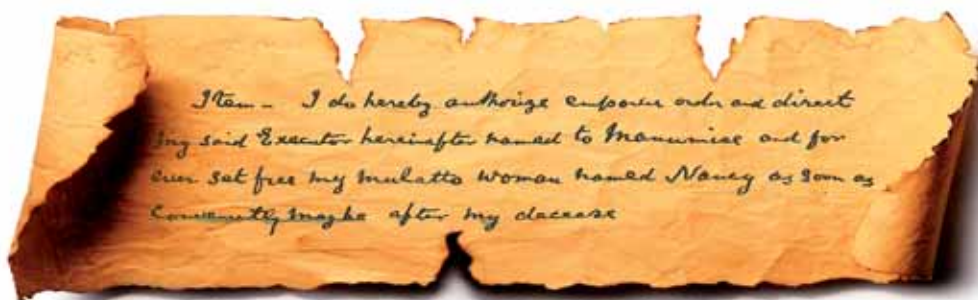 Item - I do hereby authorize empower order and direct
my said Executor hereinafter named to Manumise and for
ever set free my mulatto woman named Nancy as soon as
Conveniently maybe after my decease